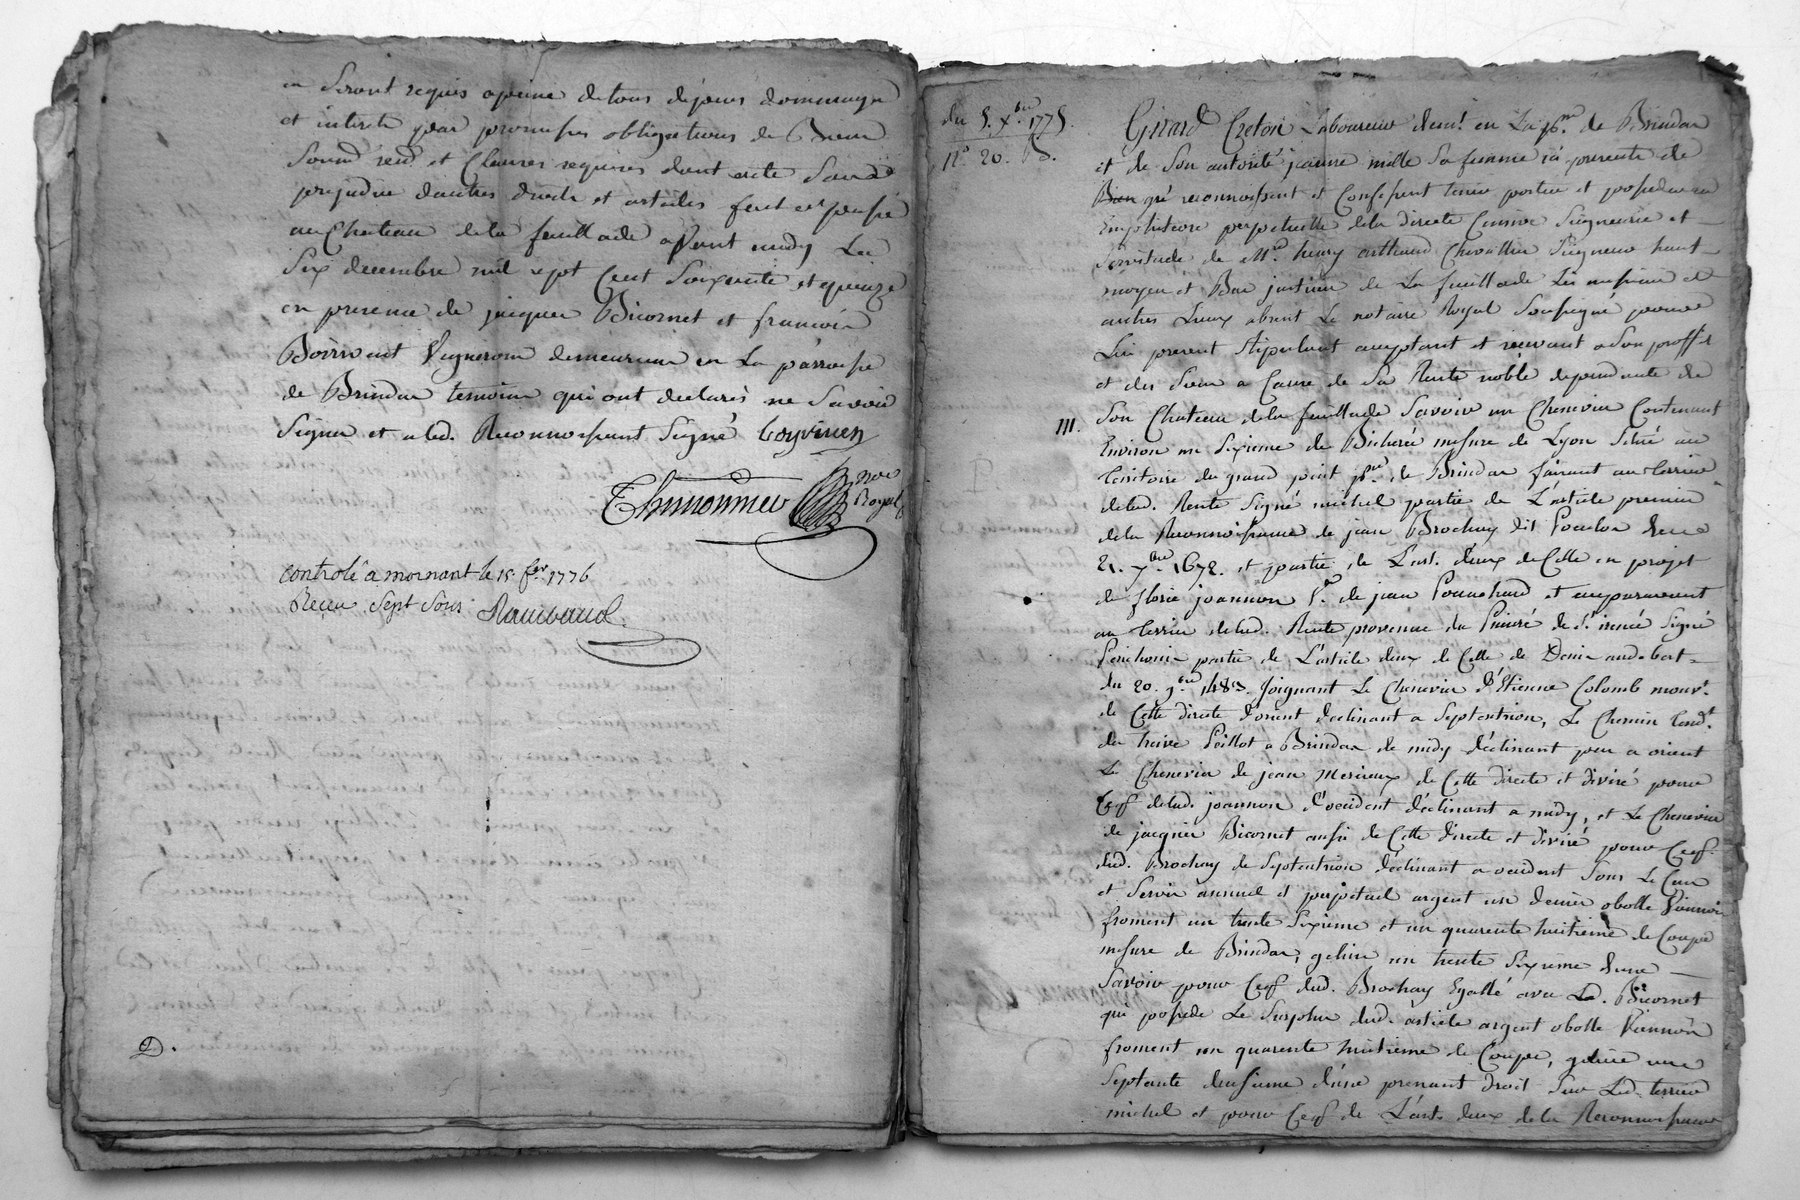 en seront requis apeine de tous depens dommages
et interets par promesses obligations de Biens
soumis renon. et Clauses requises dont acte sans
prejudice d'autres droits et articles fait et passé
au Chateau de la feuillade avant midy Le
Six decembre mil sept Cent Soixante et quinze
en presence de jacques Bicornet et francois
Boirivent Vignerons demeurans en La parroisse
de Brindas temoins qui ont declarés ne Savoir
Signer et a led. Reconnoissant Signé
Thimonnier Nore
Royal
Controlé a mornant le 15 fer 1776
Reçeu Sept Sous Rambaud.
D.
du 5. Xbre 1775.
N° 20. B.
Girard Creton Laboureur demt. en La psse. de Brindas
et de Son autorité jeanne mille Sa femme icy presente de
Bon gré reconnoissent et Confessent tenir porter et posseder en
Emphiteose perpetuelle de la directe Censive Seigneurie et
Servitude de Mre. henry arthaud Chevallier Seigneur haut
moyen et Bas justicier de La feuillade et
autres Lieux absent Le notaire Royal Soussigné pour
Lui present Stipulant acceptant et recevant a Son proffit
et des Siens a Cause de Sa Rente noble dependante de
Son Chateau de la feuillade Savoir un Chenevier Contenant
III.
Environ un Sixieme de Bicherée mesure de Lyon Situé au
territoire du grand point psse. de Brindas faisant au terrier
de lad. Rente Signé michel partie de L'article premier
de la Reconnoissance de jean Brochay dit
21. 7bre 1672. et partie de L'art. deux de Celle en projet
de florie joannon Ve. de jean Pouachard et auparavant
au terrier de lad. Rente provenue du Prieuré de St. irenée Signé
Perichon partie de L'article deux de Celle de Denis audebert
du 20. 9bre 1483. Joignant Le Chenevier d'Etienne Colomb mouvt.
de Cette directe d'orient declinant a Septentrion, Le Chemin tendt.
du treive Peillot a Brindas de midy declinant peu a orient
Le Chenevier de jean Mesieux de Cette directe et divisé pour
Ceof de lad. joannon d'occident declinant a midy, et Le Chenevier
de jacques Bicornet aussi de Cette directe et divisé pour Ceof.
dud. Brochay de Septentrion declinant a occident Sous Le Cens
et Servis annuel et perpetuel argent un denier obolle Viennois
froment un trente Sixieme et un quarente huitieme de Coupe
mesure de Brindas, geline un trente Sixieme d'une
Savoir pour Ceof dud. Brochay Egallé avec Led. Bicornet
qui possede Le Surplus dud. article argent obolle Viennois
froment un quarente huitieme de Coupe, geline une
Septante deusieme d'une prenant droit Sur Led. terrier
michel et pour Ceof de L'art. deux de la Reconnoissance